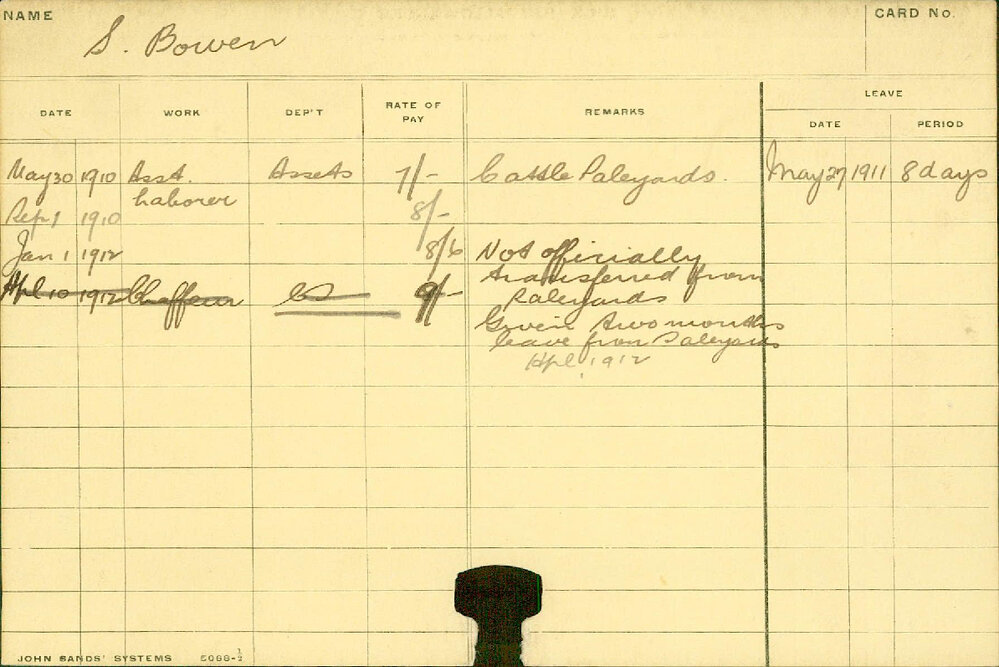 NAME S. Bowen CARD No.
DATE WORK DEP'T RATE OF PAY REMARKS LEAVE
DATE PERIOD
May 30 1910 Asst. Assets 7/- Cattle Saleyards. May 27 1911 8 days
Laborer
Sep 1 1910 8/-
Jan 1 1912 8/6 Not officially
transferred from
Apl 10 1912 Chaffeur 9/- Saleyards
Given two months
leave from Saleyards
Apl. 1912
JOHN SANDS' SYSTEMS